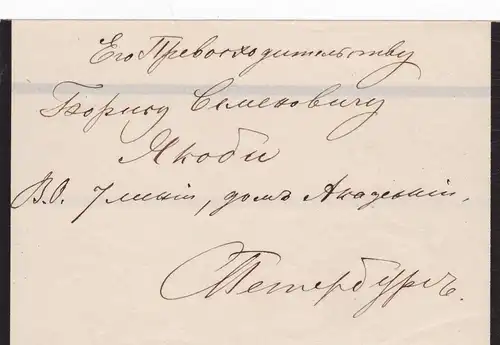 Его Превосходительству
Борису Семеновичу
Якоби
В.О. 7 линiи, домъ Академiи,
СПетербургъ.